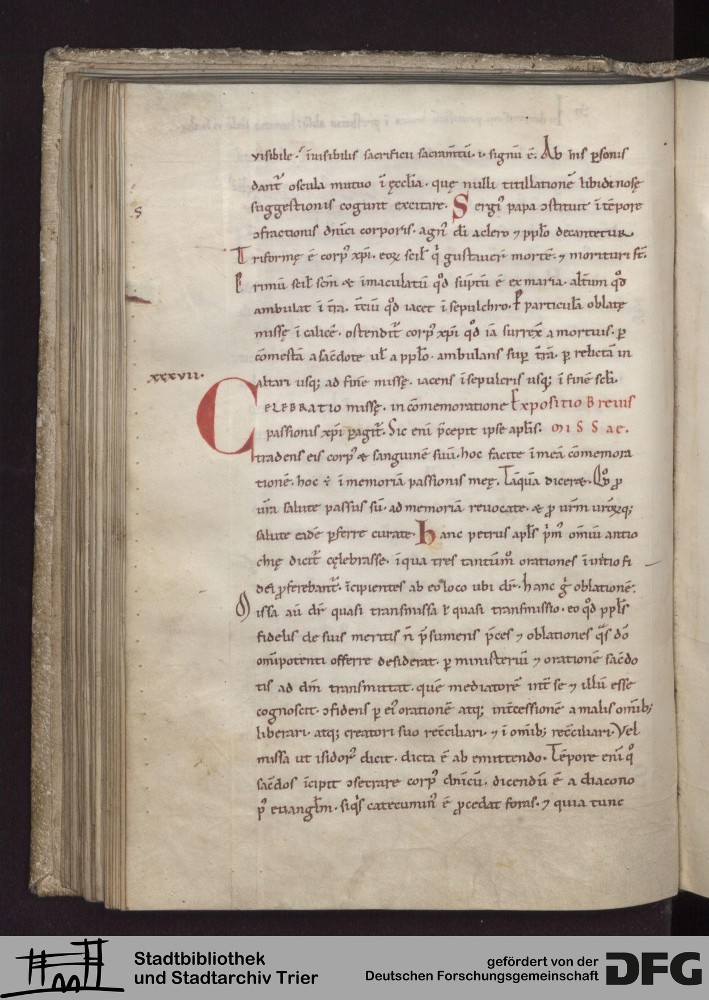 visibile ⁊ ĩuisibilis sacrificii sacram̄tū · i · signū ē. Ab his p̱sonis
dant᷑ oscula mutuo ĩ ęccl̄ia · quę nulli titillationē libidinosę
suggestionis cogunt excitare. Sergiꝰ papa ↄstituit ĩ tēpore
ↄfractionis dn̄ici corporis · agnꝰ dī aclero ⁊ ppl̄o decantetur
S
Triformę ē corpꝰ xp̄i ·
Primū scil̄ scm̄ & ĩmaculatū qd̄ sūptū ē ex maria · altum qd̄
ambulat ĩ t̄ra · t̄ciū qd̄ iacet ĩ sepulchro · P particulā oblatę
missę ĩ calicē · ostendit᷑ corpꝰ xp̄i qd̄ iā surrex̄ a mortuis · p̱
cōmestā a sac̄dote ul̄ a ppl̄o · ambulans sup̱ t̄rā · p̱ relictā in
altari usq; ad finē missę · iacens ĩ sepulcris usq; ĩ finē sc̄li ·
xxxvii ·
CELEBRATIO missę · in cōmemoratione Expositio Breuis
passionis xp̄i pagit᷑ · Sic eni p̄cepit ipse apl̄is · MISSAE ·
tradens eis corpꝰ & sanguinē suū · hoc facite ĩ meā cōmemora
tionē · hoc ē ĩ memoriā passionis meę · Tāquā diceret · Qd̄ ꝓ
ur̄a salute passus sū · ad memoriā reuocate · & ꝓ
salute eadē p̱ferre curate · Hanc petrus apl̄s p̄mꝰ omiū antio
chię dicit᷑ cęlebrasse · ĩ qua tres tantūm orationes ĩ initio fi
dei ꝓferebant᷑ · ĩcipientes ab eo loco ubi dr̄ · hanc g̊ oblationē ·
Missa aū dr̄ quasi transmissa ł quasi transmissio · eo qd̄ ppl̄s
fidelis de suis meritis n̄ p̄sumens p̄ces ⁊ oblationes q̄s dō
om̄ipotenti offerre desiderat · p̱ ministeriū ⁊ orationē sac̄do
tis ad dm̄ transmittat · quē mediatorē int̄ se ⁊ illū esse
cognoscit · ↄfidens p̱ eiꝰ orationē atq; int̄cessionē a malis om̄ib;
liberari · atq; creatori suo recc̄iliari · ⁊ ĩ om̄ib; recc̄iliari · Vel
missa ut isidorꝰ dicit · dicta ē ab emittendo · Tēpore eni qͦ
sac̄dos ĩcipit ↄsecrare corpꝰ dn̄icū · dicendū ē a diacono
pꝰ euangl̄m · siqͥs catecuminꝰ ē ꝓcedat foras · ⁊ quia tunc
Stadtbibliothek
und Stadtarchiv Trier
gefördert von der
Deutschen Forschungsgemeinschaft DFG